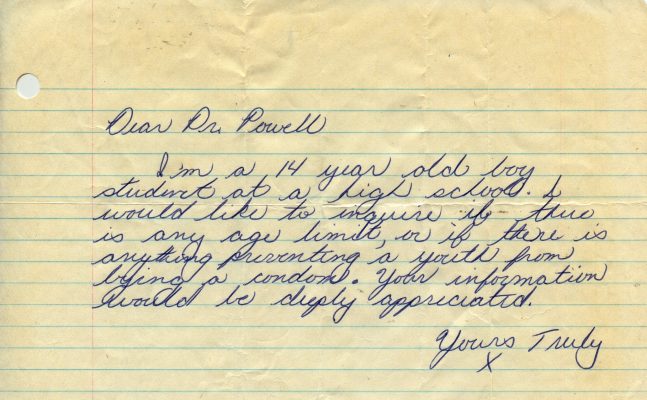 Dear Dr. Powell
I'm a 14 year old boy
student at a high school. I
would like to inquire if there
is any age limit, or if there is
anything preventing a youth from
bying a condom. Your information
would be deeply appreciated.
Yours Truly
X